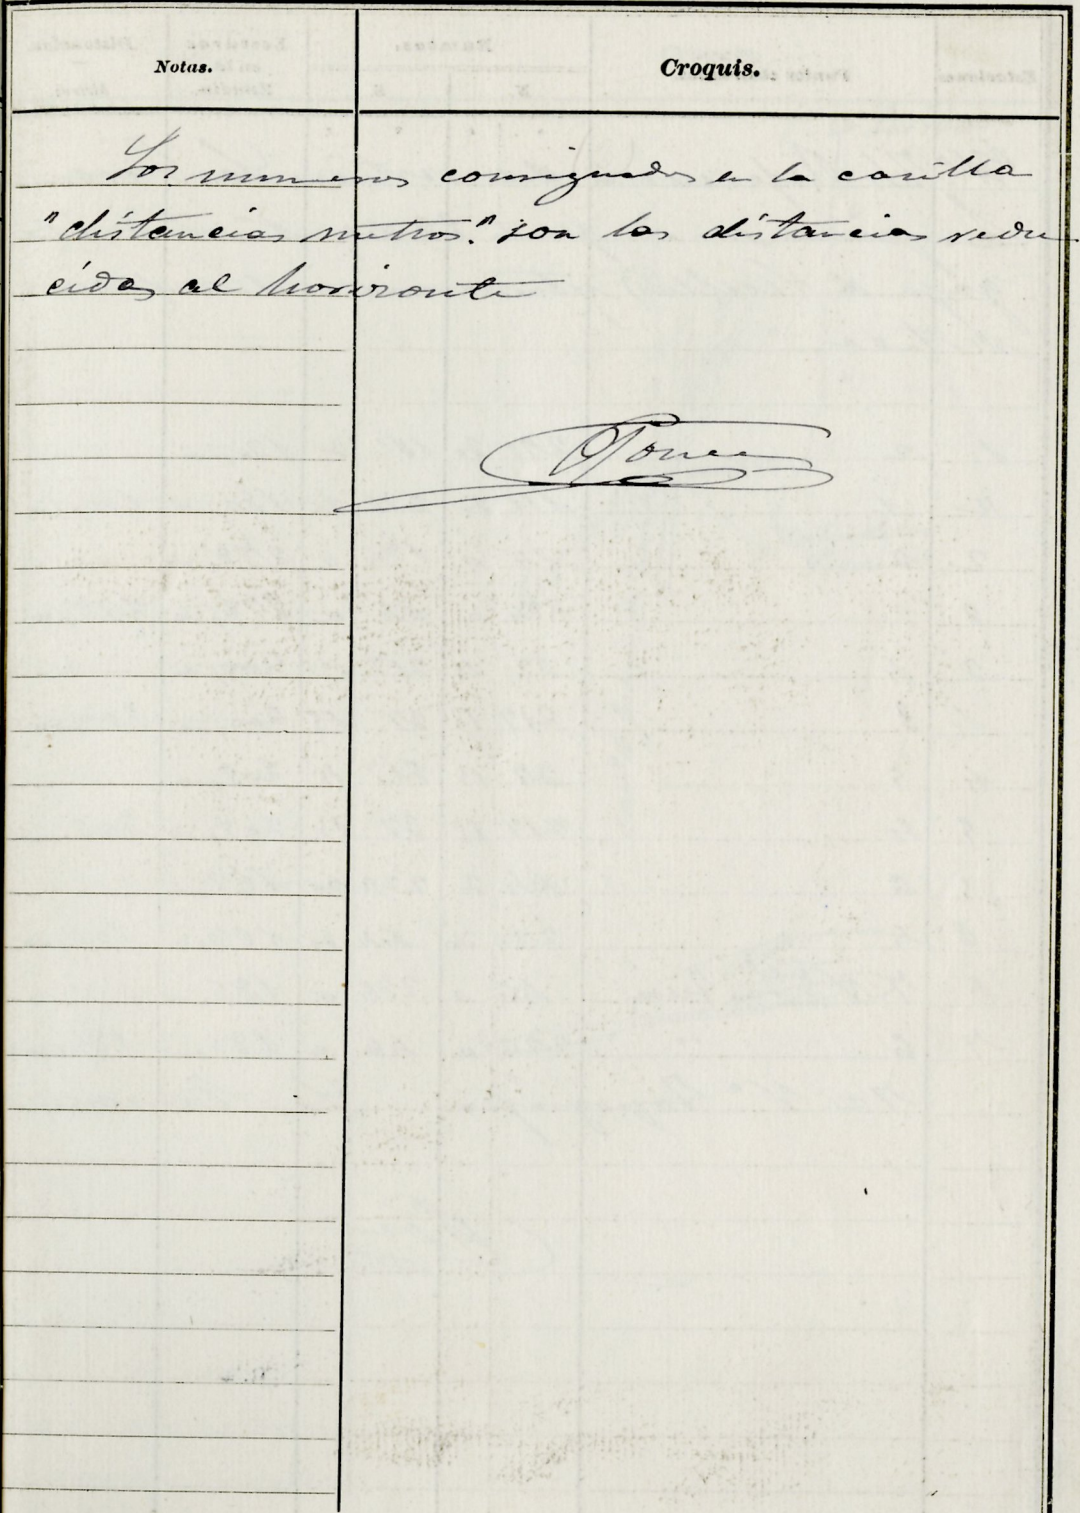 Notas. Croquis.
Los numeros consignados en la casilla
"distancias metros." son las distancias redu-
cidas al horizonte